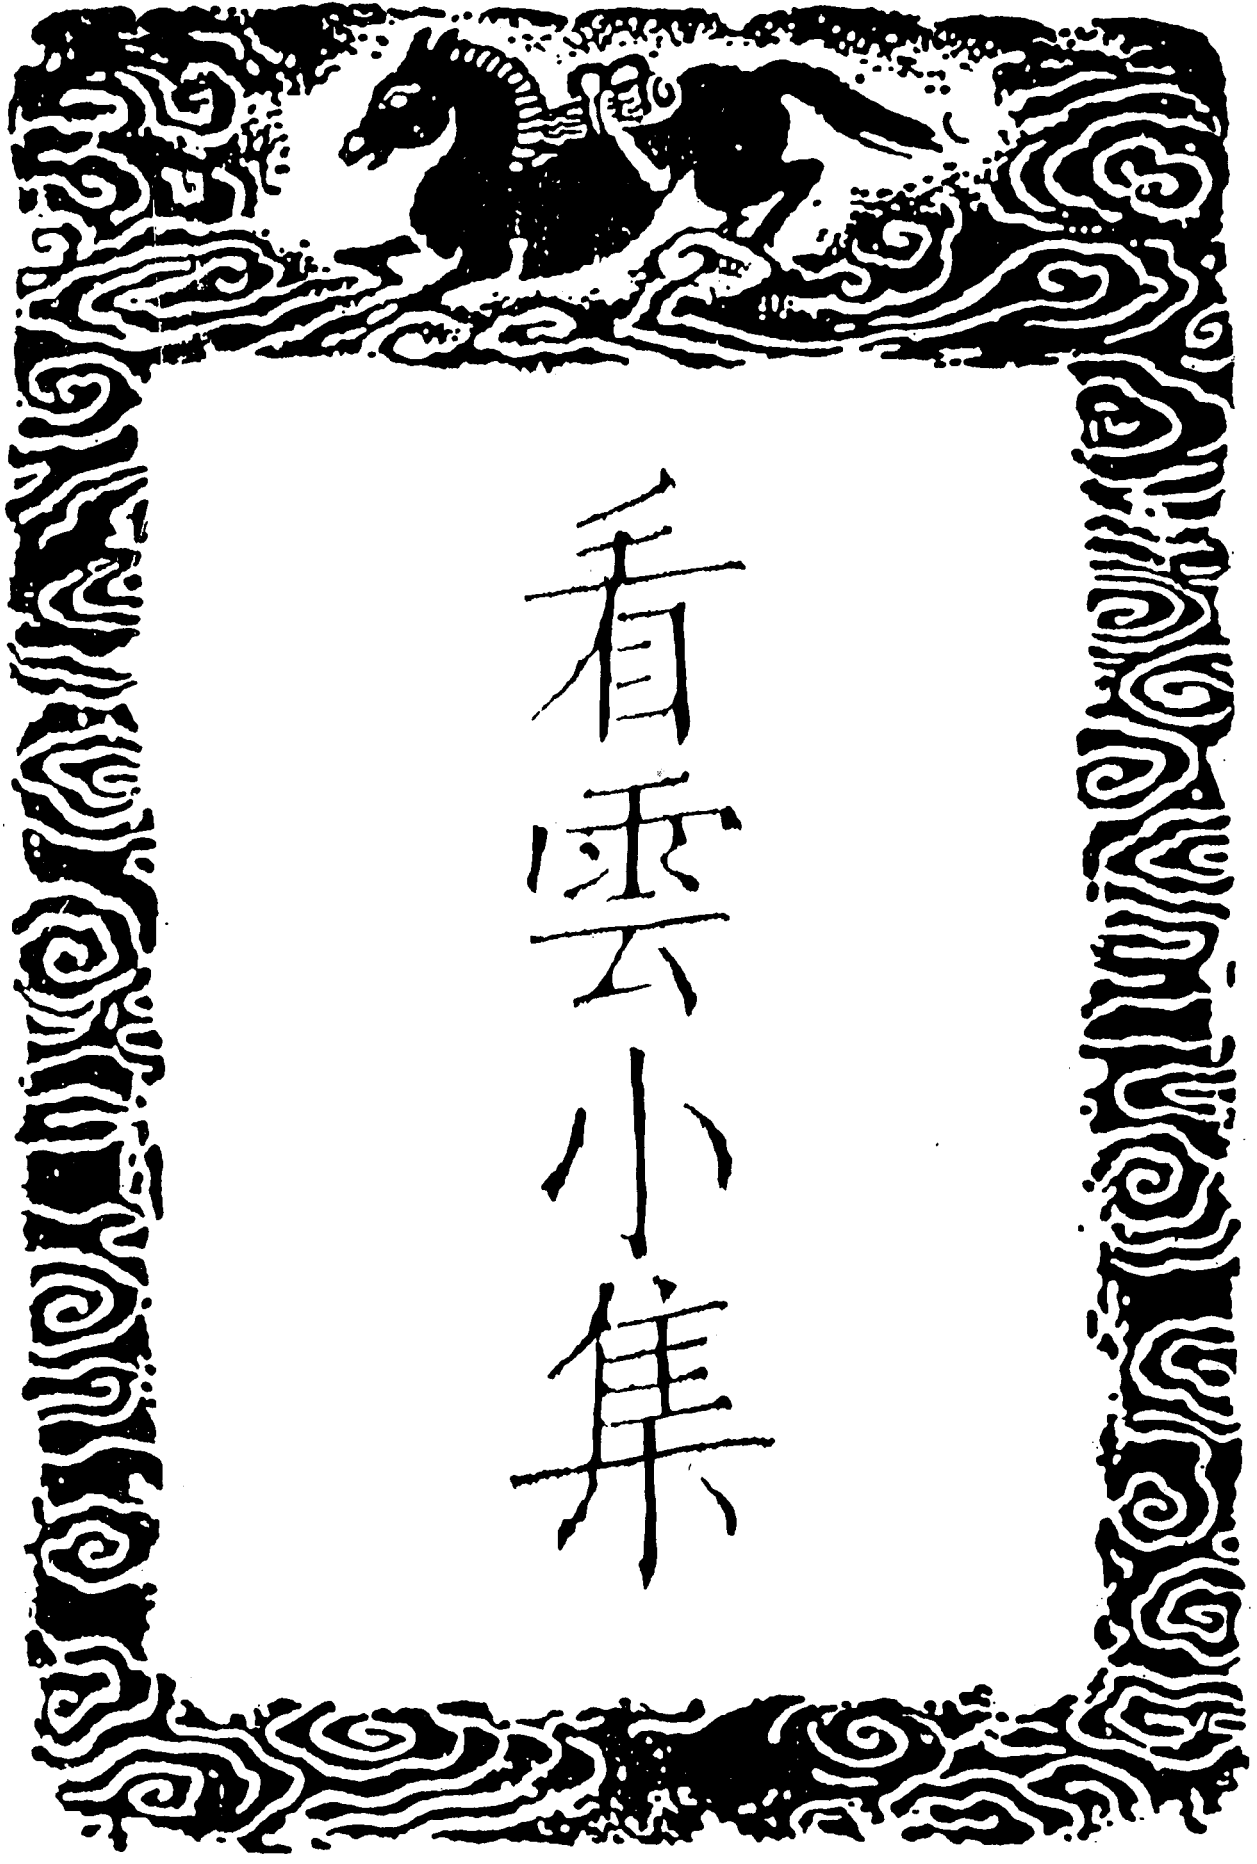 看雲小集